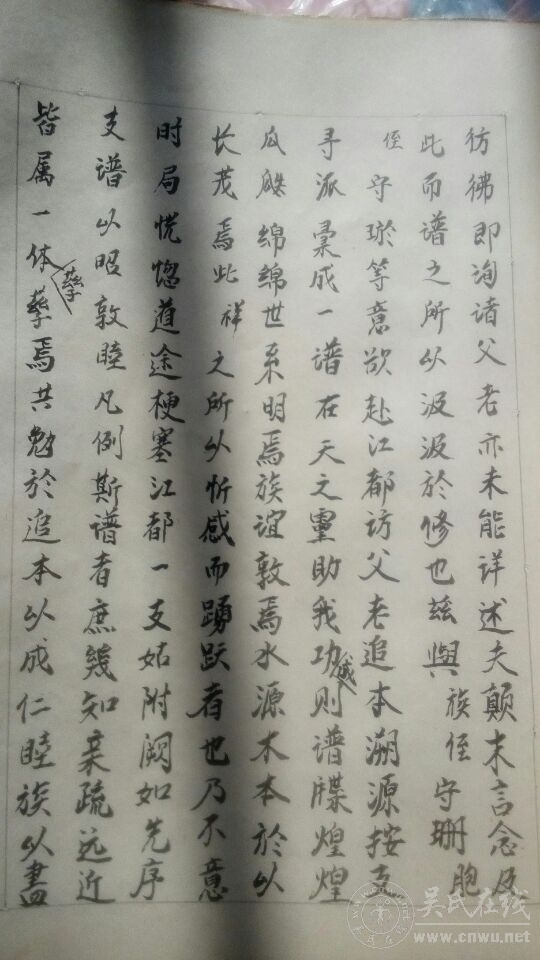 彷彿即询诸父老亦未能详述夫颠末言念及
此而谱之所以汲汲於修也兹與族侄守珊胞
侄守琀等意欲赴江都访父老追本溯源按支
寻派彙成一谱在天之靈助我功成则谱牒煌煌
瓜瓞绵绵世系明焉族谊敦焉水源木本於以
长茂焉此祥之所以忻感而踴跃者也乃不意
时局恍惚道途梗塞江都一支姑附阙如先序
支谱以昭敦睦凡例斯谱者庶幾知亲疏远近
皆属一体孳孳焉共勉於追本以成仁睦族以畫
吴氏在线
www.cnwu.net